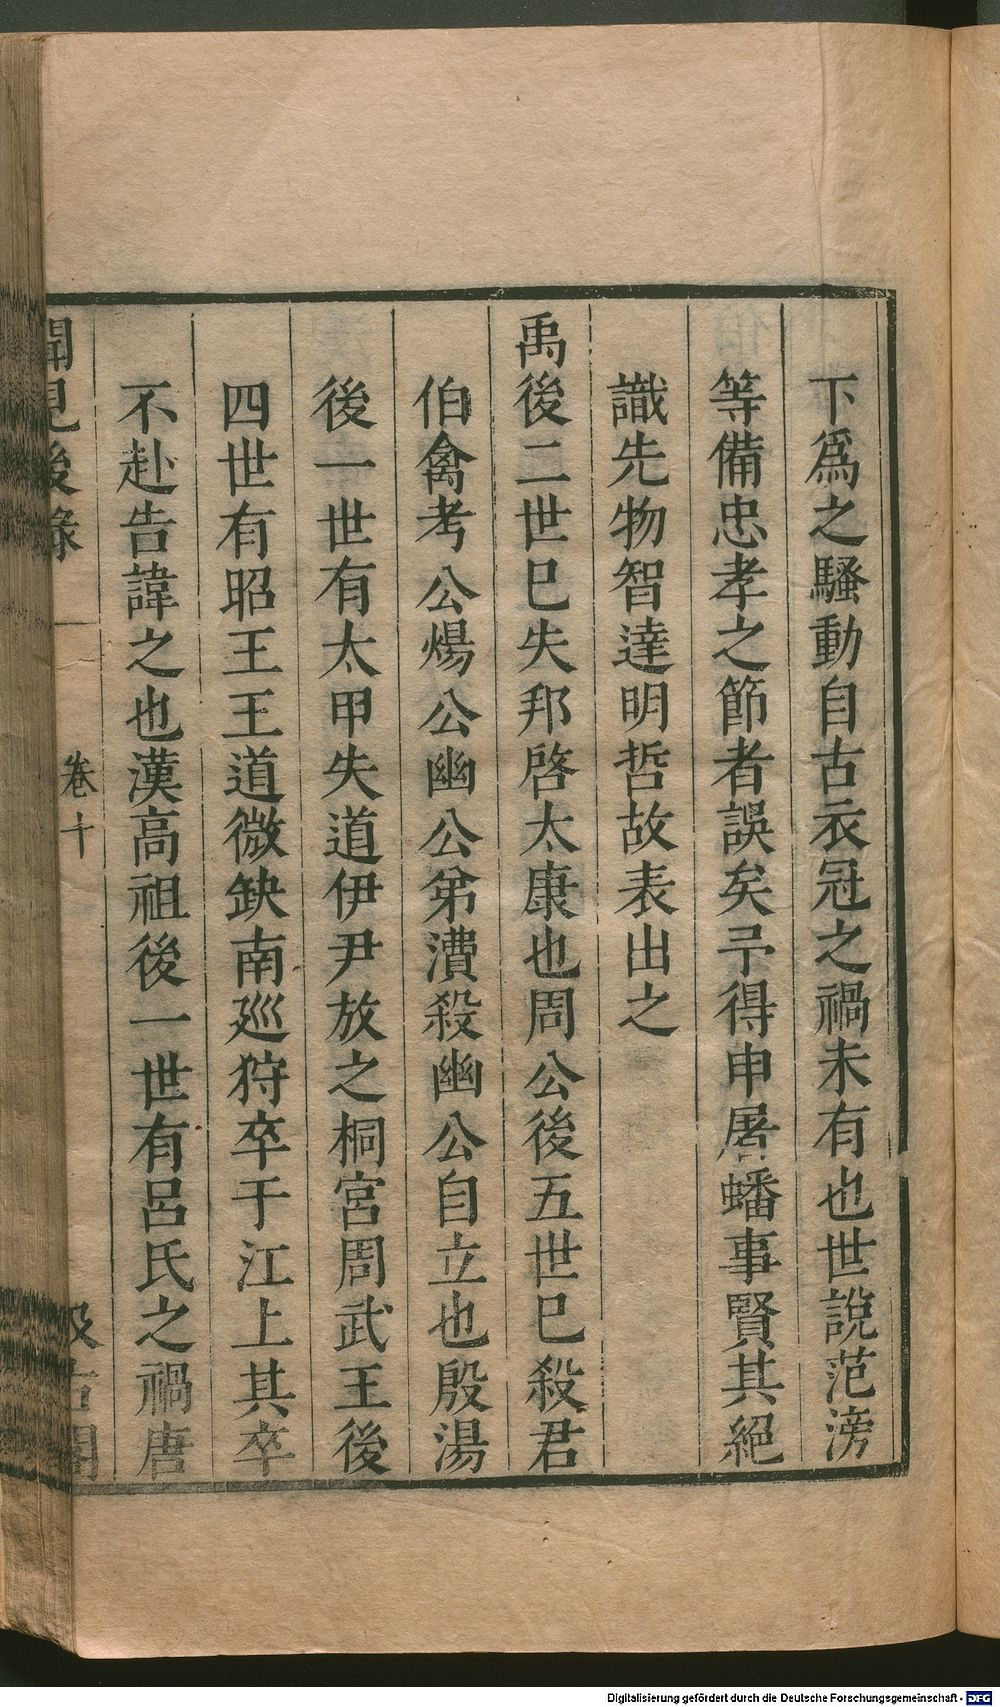 下爲之騷動自古衣冠之禍未有也世說范滂
等備忠孝之節者誤矣予得申屠蟠事賢其絕
識先物智達明哲故表出之
禹後二世巳失邦啓太康也周公後五世巳殺君
伯禽考公煬公幽公弟㵒殺幽公自立也殷湯
後一世有太甲失道伊尹放之桐宮周武王後
四世有昭王王道微缺南巡狩卒于江上其卒
不赴告諱之也漢高祖後一世有呂氏之禍唐
聞見後錄
卷十
汲古閣
Digitalisierung gefördert durch die Deutsche Forschungsgemeinschaft - DFG